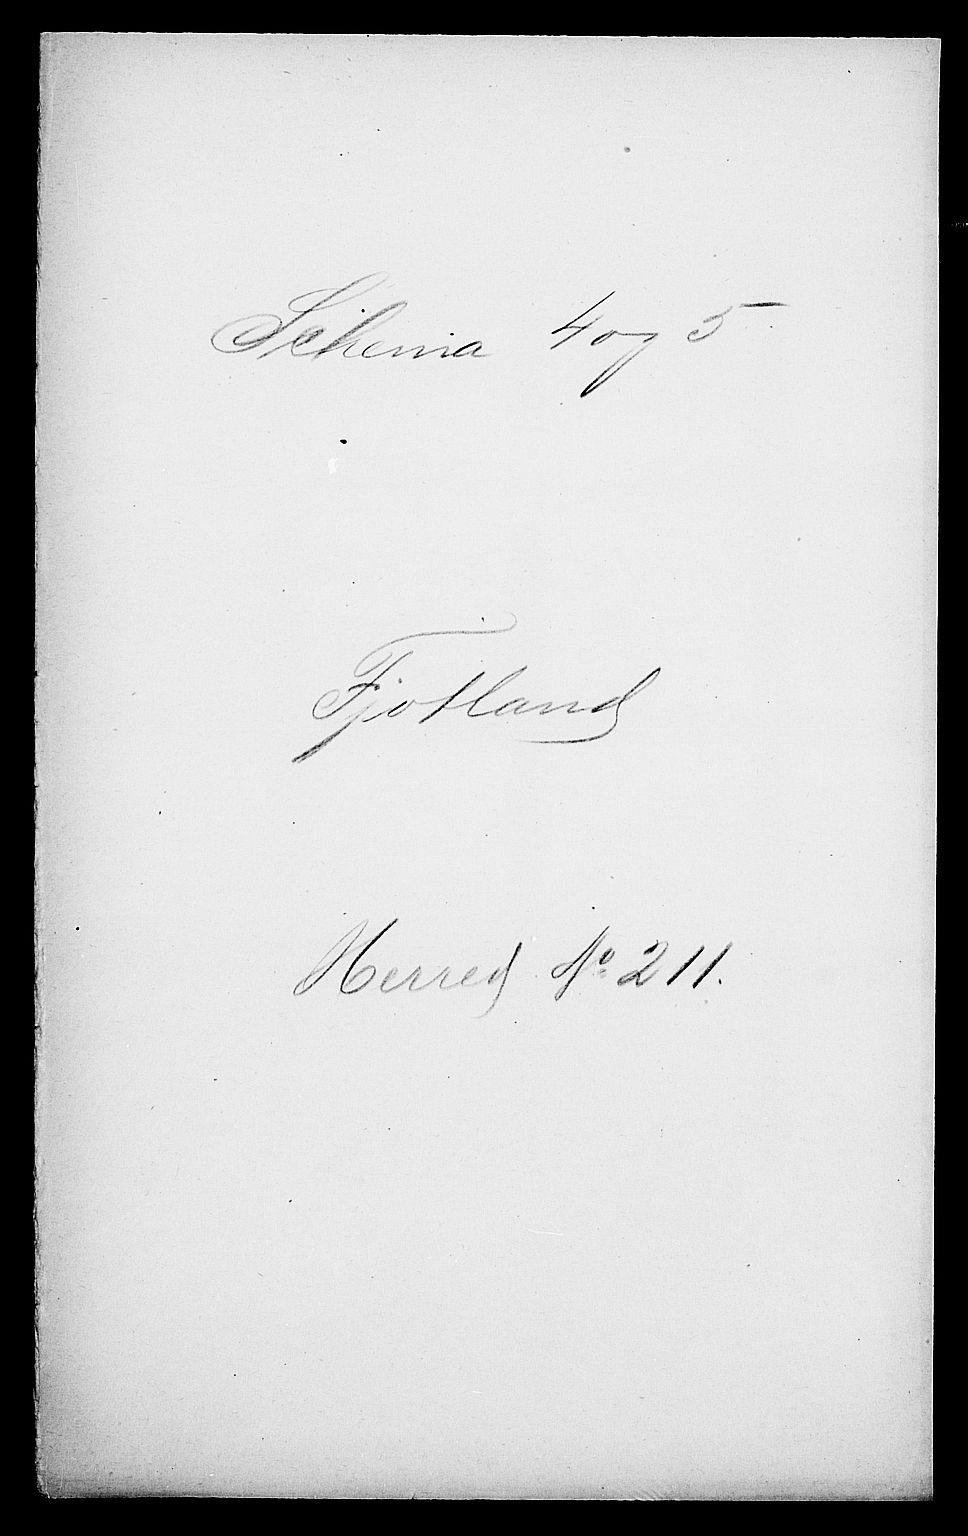 Schema 4 og 5
Fjotland
Herred No 211.